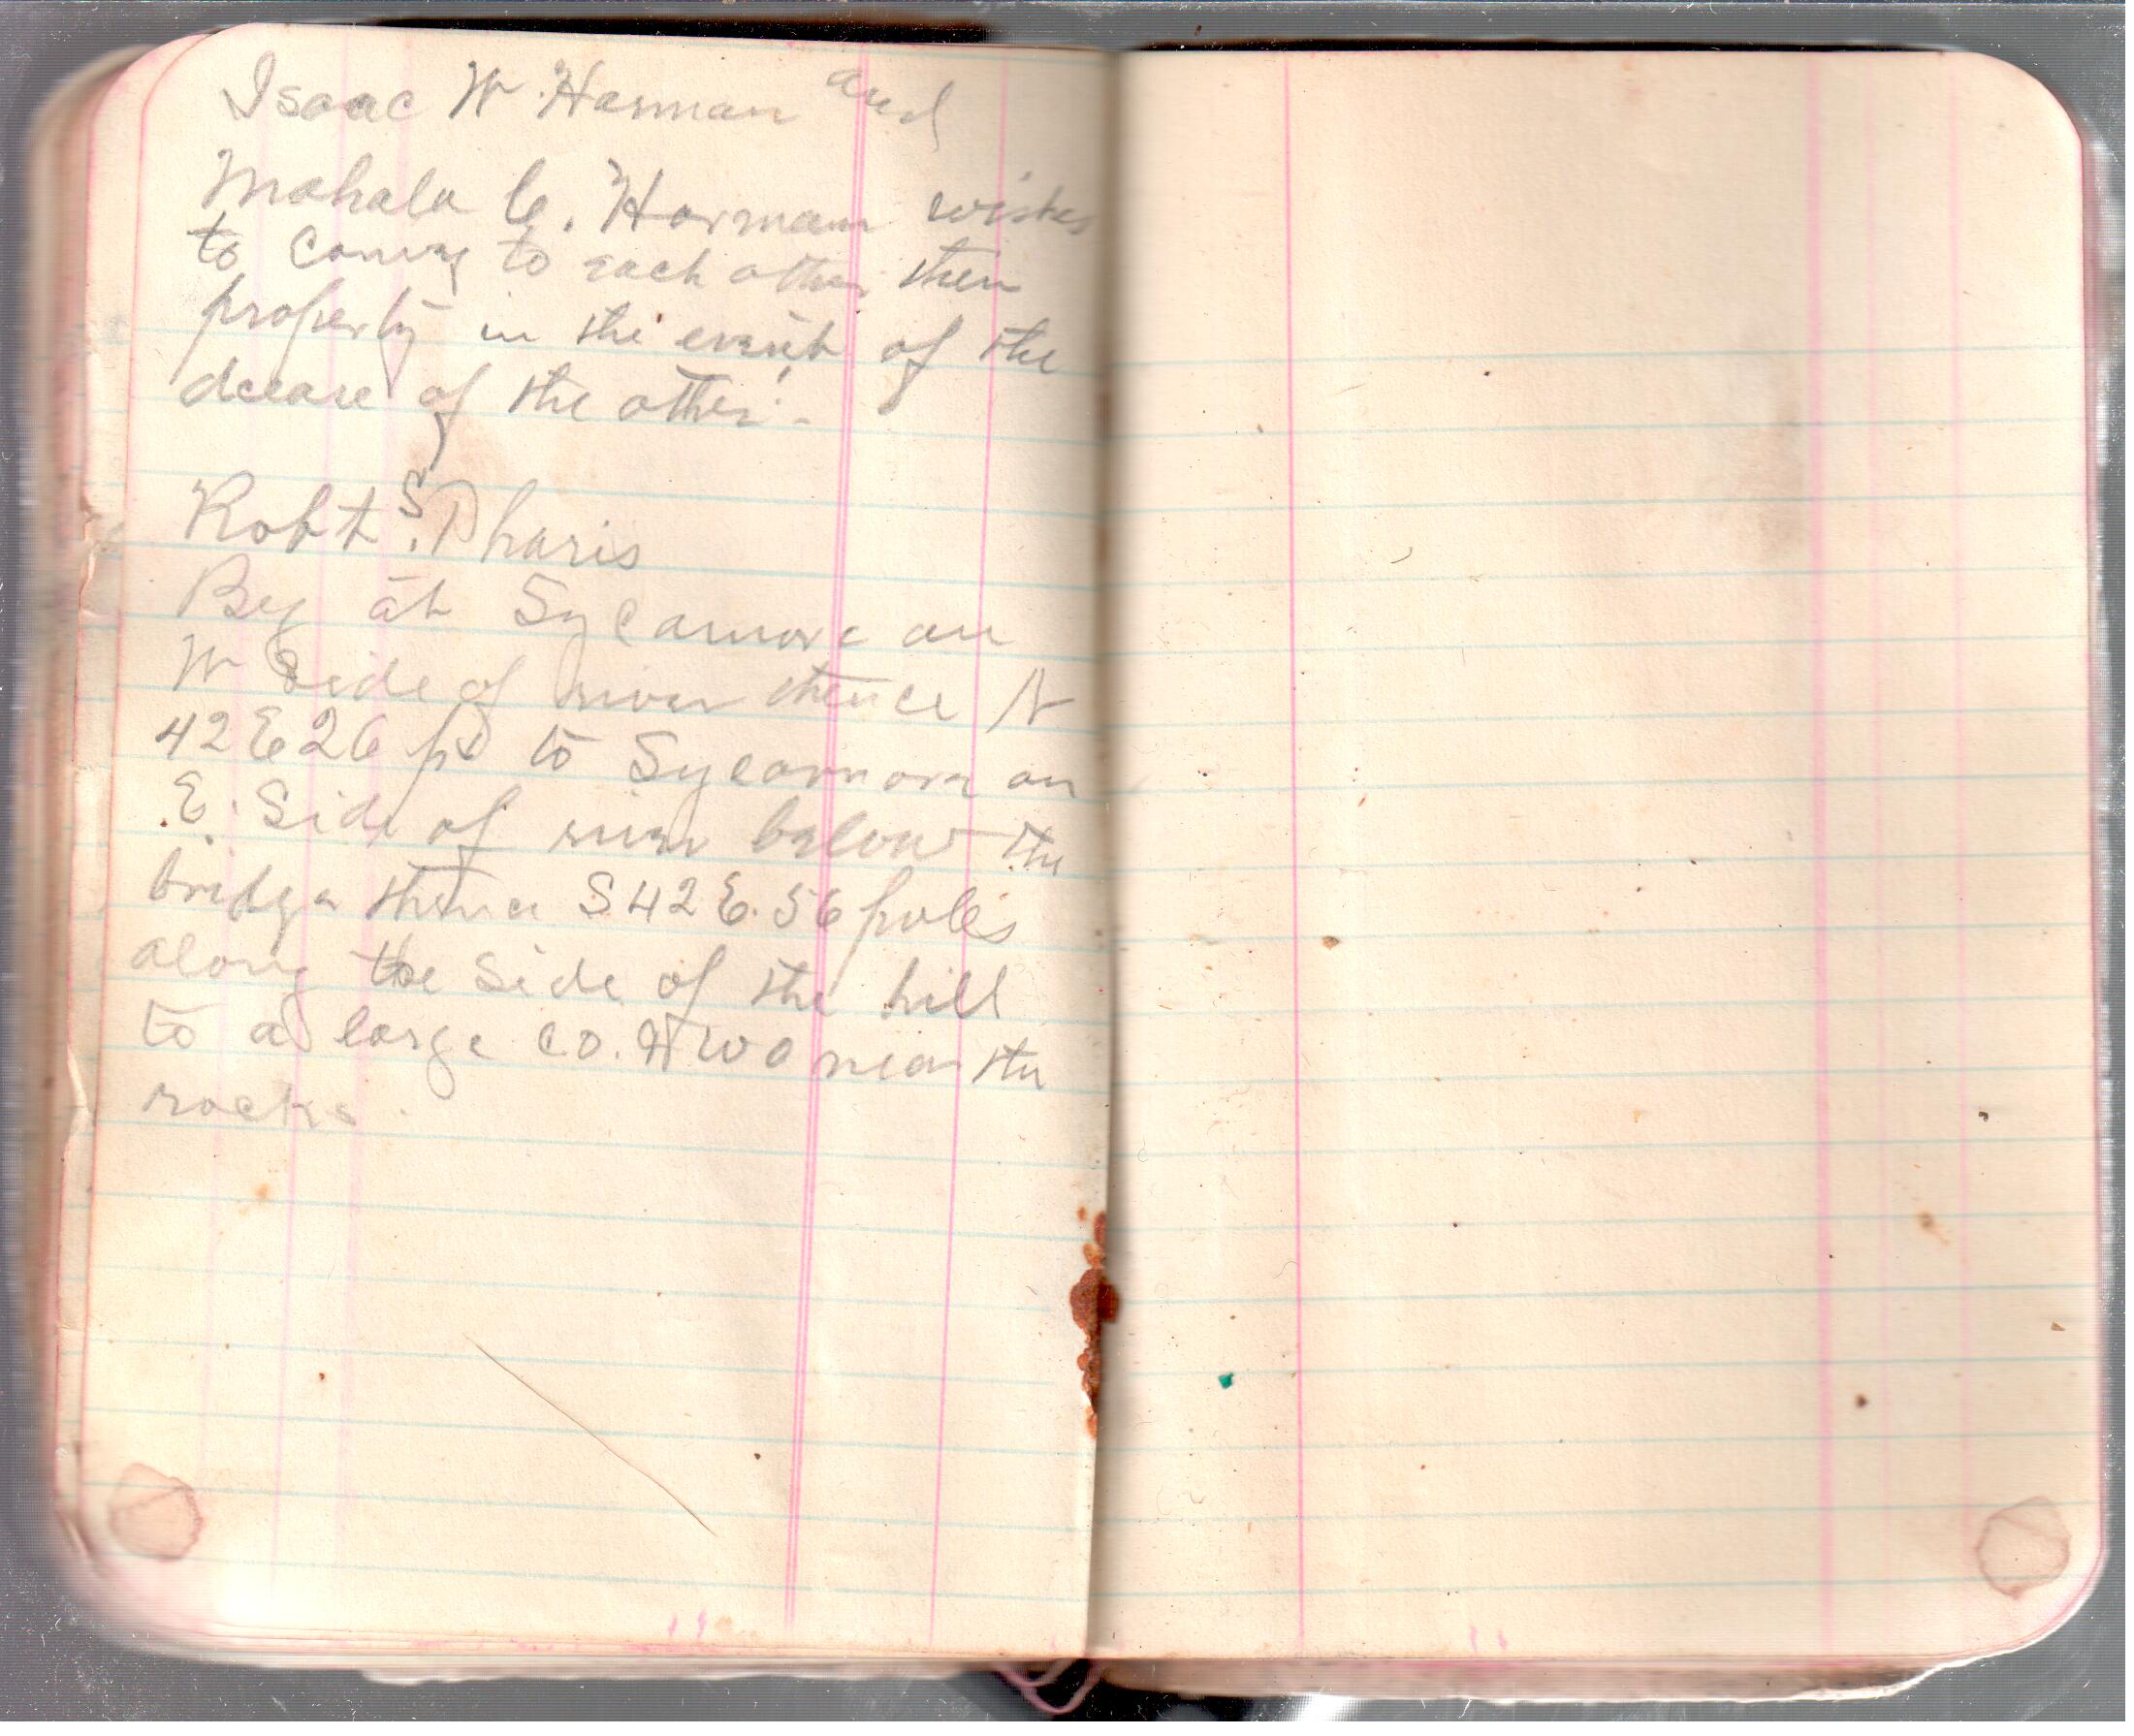 Isaac W. Harman and
Mahala C. Harman wishes
to convey to each other their
property in the event of the
decease of the other.-
Robt S. Pharis
Beg at Sycamore on
W Side of river thence N
42 E 26 po to Sycamore on
E. Side of river below the
bridge thence S 42 E. 56 poles
along the side of the hill
to a large C.O. & W O near the
rocks.